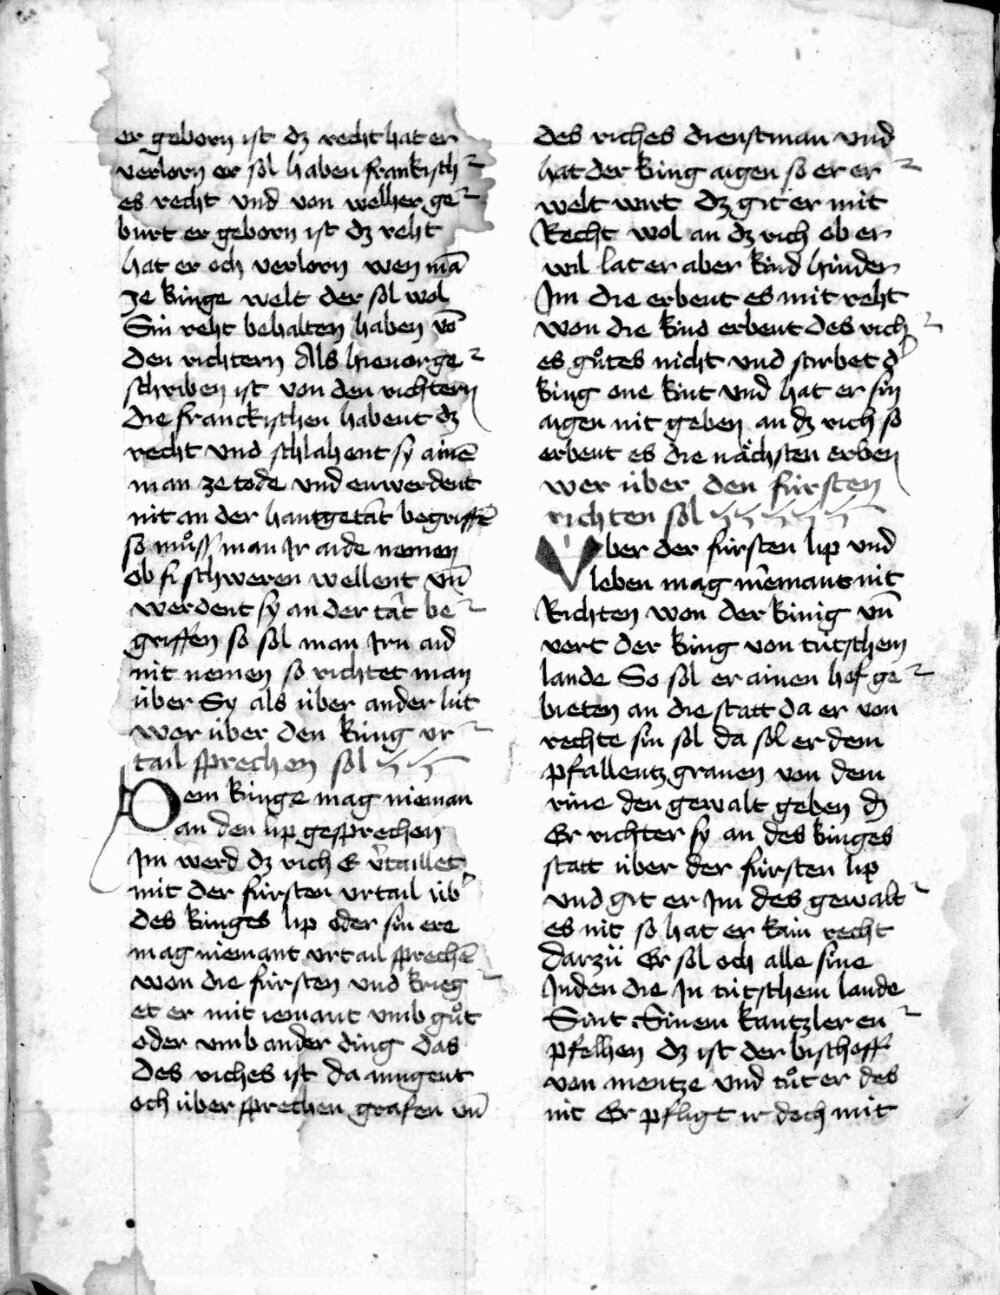 er geborn ist dz recht hat er
verlorn er sol haben frankisch
es recht vnd von welher ge
burt er geborn ist dz reht
hat er och verlorn wen mā
ze kinge welt der sol wol
Sin reht behalten haben vō
den richtern Als hieuor ge
schriben ist von den richtern
die franckischen habent dz
recht vnd schlahent sy ainē
man ze tode vnd enwerdent
nit an der hantgetāt begriffē
so mu̇ss man Ir aide nemen
ob si schweren wellent vn̄
werdent sy an der tāt be
griffen so sol man Irn aid
nit nemen so richtet man
über Sy als über ander lüt
wer über den küng vr
tail sprechen sol
Dem kinge mag nieman
an den lip gesprechen
Im werd dz rich E v̄taillet
mit der fürsten vrtail üb̾
des kinges lip oder sin ere
mag niemant vrtail sprechē
won die fürsten vnd krieg
et er mit iemant vmb gůt
oder vmb ander ding das
des riches ist da mugent
och über sprechen grafen vn̄
des riches dienstman vnd
hat der king aigen so er er
welt wirt dz git er mit
Recht wol an dz rich ob er
wil lat er aber kind hinder
Im die erbent es mit reht
won die kind erbent des rich
es gůtes nicht vnd stirbet d̾
king one kint vnd hat er sin
aigen nit geben an dz rich so
erbent es die nächsten erben
wer über den fürsten
richten sol
Vber der fürsten lip vnd
leben mag niemant nit
Richten won der kinig vn̄
vert der king von tütschem
lande So sol er ainen hof ge
bieten an die statt da er von
rechte sin sol da sol er dem
pfallentzgrauen von dem
rine den gewalt geben dz
Er richter sy an des kinges
statt über der fürsten lip
vnd git er Im des gewalt
es nit so hat er kain recht
darzü Er sol och alle sine
Juden die In tütschem lande
Sint Sinem kantzler en
pfelhen dz ist der bischoff
von mentze vnd tůt er des
nit Er pfligt ir doch mit